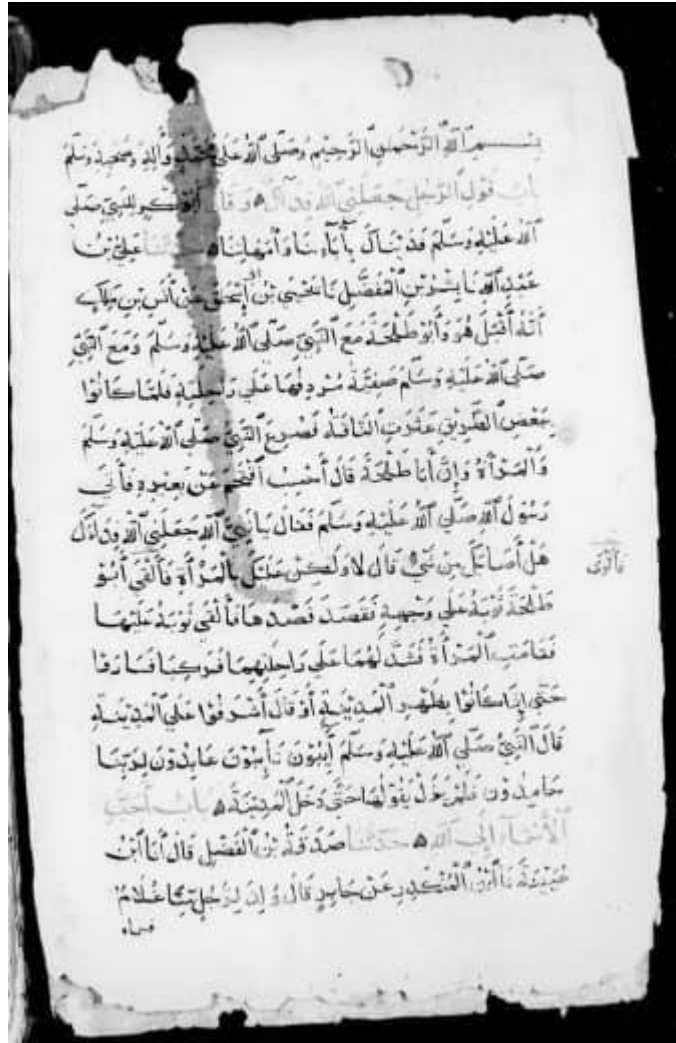 بسم الله الرحمن الرحيم وصلى الله على محمد وآله وصحبه وسلم
باب قول الرجل جعلني الله فداك وقال أبو بكر للنبي صلى
الله عليه وسلم فديناك بآبائنا وأمهاتنا حدثنا علي بن
عبد الله نا بشر بن المفضل نا يحيى بن إسحق عن أنس بن مالك
أنه أقبل هو وأبو طلحة مع النبي صلى الله عليه وسلم ومع النبي
صلى الله عليه وسلم صفية مردفها على راحلته فلما كانوا
ببعض الطريق عثرت الناقة فصرع النبي صلى الله عليه وسلم
والمرأة وإن أبا طلحة قال أحسب اقتحم عن بعيره فأتى
رسول الله صلى الله عليه وسلم فقال يا نبي الله جعلني الله فداك
هل أصابك من شيء قال لا ولكن عليك بالمرأة فألقى أبو
طلحة ثوبه على وجهه فقصد قصدها فألقى ثوبه عليها
فقامت المرأة فشد لهما على راحلتهما فركبا فسارفا
حتى إذا كانوا بظهر المدينة أو قال أشرفوا على المدينة
قال النبي صلى الله عليه وسلم آيبون تائبون عابدون لربنا
حامدون فلم يزل يقولها حتى دخل المدينة باب أحب
الأسماء إلى الله حدثنا صدقة بن الفضل قال أنا ابن
عيينة نا ابن المنكدر عن جابر قال ولد لرجل منا غلام
فألوى